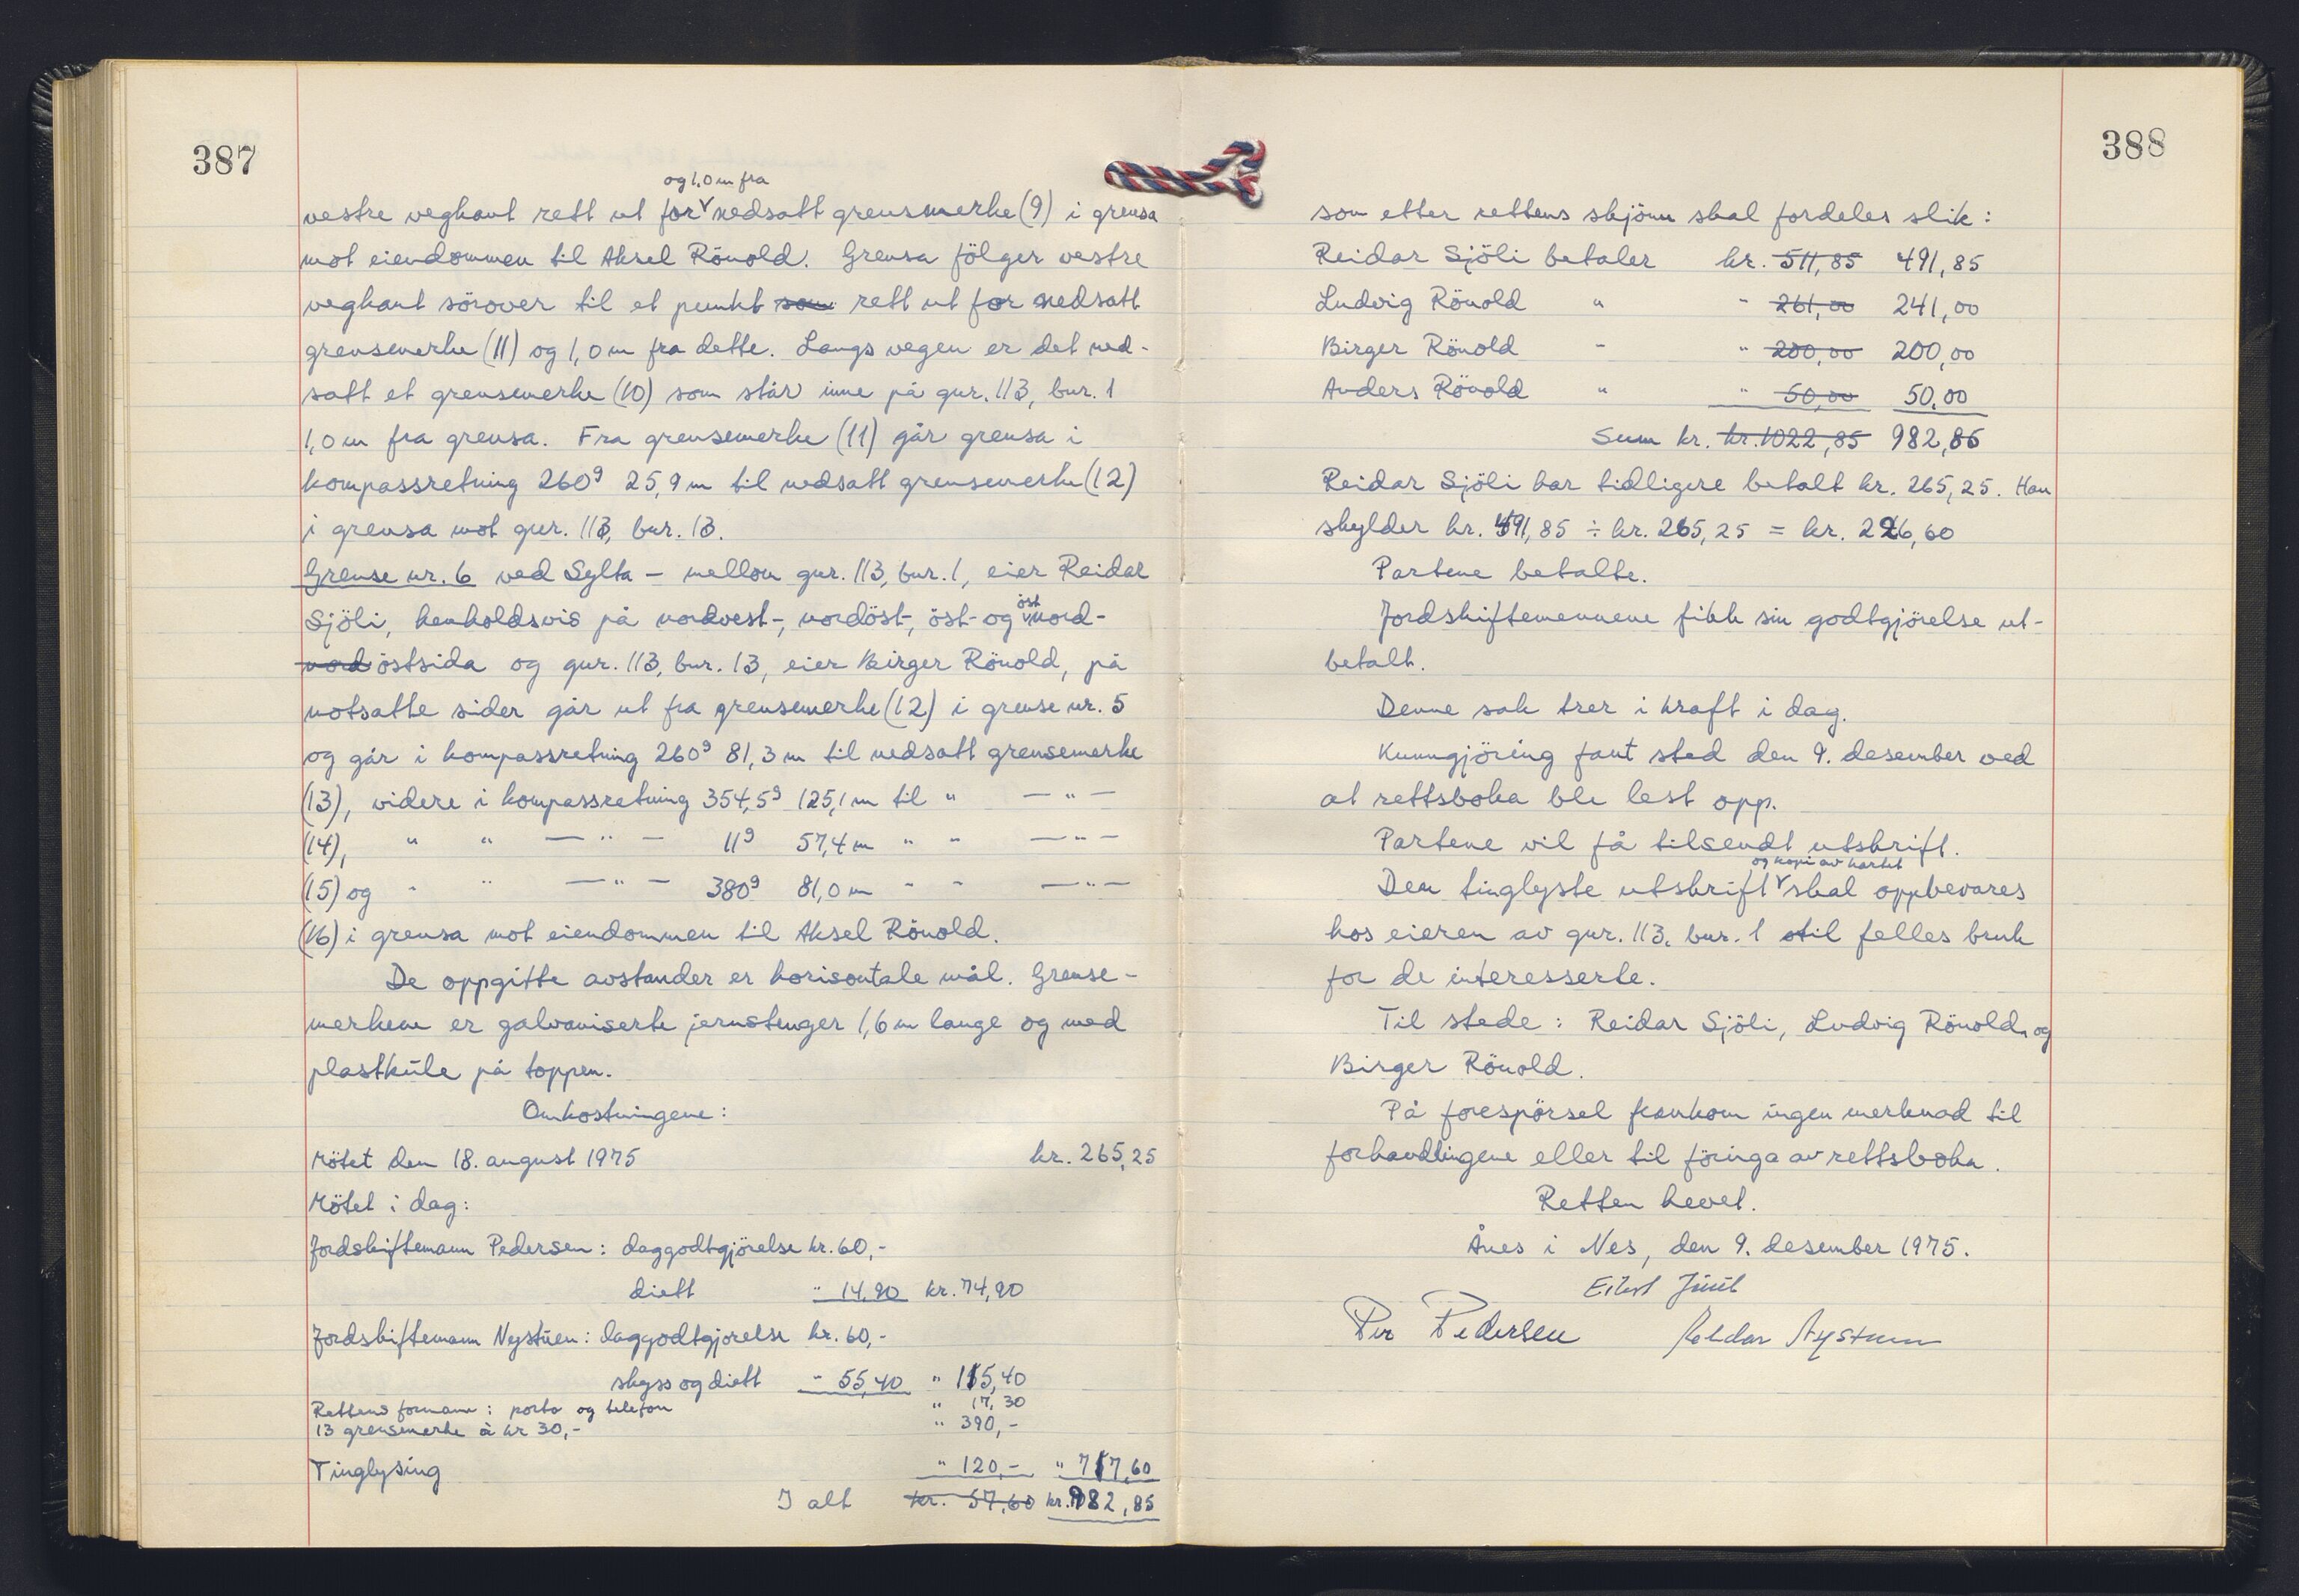 387
og 1,0 m fra
vestre vegkant rett ut for nedsatt grensemerke (9) i grensa
mot eiendommen til Aksel Rönold. Grensa fölger vestre
vegkant sörover til et punkt som rett ut for nedsatt
grensemerke (11) og 1,0 m fra dette. Langs vegen er det ned-
satt et grensemerke (10) som står inne på gnr. 113, bnr. 1
1,0 m fra grensa. Fra grensemerke (11) går grensa i
kompassretning 260g 25,9 m til nedsatt grensemerke (12)
i grensa mot gnr. 113, bnr. 13.
Grense nr. 6 ved Sylta – mellom gnr. 113, bnr. 1, eier Reidar
Sjöli, henholdsvis på nordvest-, nordöst-, öst- og öst nord-
nord östsida og gnr. 113, bnr. 13, eier Birger Rönold, på
motsatte sider går ut fra grensemerke (12) i grense nr. 5
og går i kompassretning 260g 81,3 m til nedsatt grensemerke
(13), videre i kompassretning 354,5g 125,1 m til " — " —
(14), " " — " — 11g 57,4 m " " — " —
(15) og " " — " — 380g 81,0 m " " — " —
(16) i grensa mot eiendommen til Aksel Rönold.
De oppgitte avstander er horisontale mål. Grense-
merkene er galvaniserte jernstenger 1,6 m lange og med
plastkule på toppen.
Omkostningene:
Mötet den 18. august 1975 kr. 265,25
Mötet i dag:
Jordskiftemann Pedersen: daggodtgjörelse kr. 60,-
diett " 14,90 kr. 74,90
Jordskiftemann Nystuen: daggodtgjorelse kr. 60,-
skyss og diett " 55,40 " 115,40
Rettens formann: porto og telefon " 17,30
13 grensemerke à kr 30,- " 390,-
Tinglysing " 120,- " 717,60
I alt kr. 57,60 kr. 982,85
388
som etter rettens skjönn skal fordeles slik:
Reidar Sjöli betaler kr. 511,85 491,85
Ludvig Rönold " " 261,00 241,00
Birger Rönold " " 200,00 200,00
Anders Rönold " " 50,00 50,00
Sum kr. kr. 1022,85 982,85
Reidar Sjöli har tidligere betalt kr. 265,25. Han
skylder kr. 491,85 ÷ kr. 265,25 = kr. 226,60
Partene betalte.
Jordskiftemennene fikk sin godtgjörelse ut-
betalt.
Denne sak trer i kraft i dag.
Kunngjöring fant sted den 9. desember ved
at rettsboka ble lest opp.
Partene vil få tilsendt utskrift.
og kopi av kartet
Den tinglyste utskrift skal oppbevares
hos eieren av gnr. 113, bnr. 1 til felles bruk
for de interesserte.
Til stede: Reidar Sjöli, Ludvig Rönold, og
Birger Rönold.
På forespörsel framkom ingen merknad til
forhandlingene eller til föringa av rettsboka.
Retten hevet.
Ånes i Nes, den 9. desember 1975.
Per Pedersen